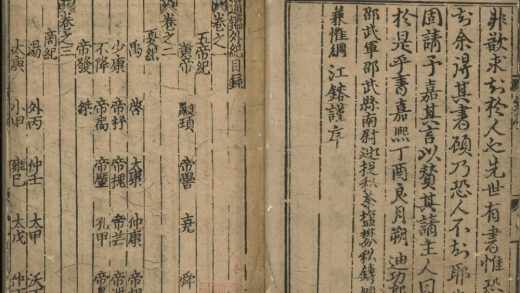 非欲求知於人也先世有書惟恐
知余得其書顧乃恐人不知耶
固請予嘉其言以賛其請主人曰
於是乎書嘉熙丁酉良月朔迪功郎
邵武軍邵武縣南尉巡捉私茶鹽礬私鑄銅
兼催綱江鎔謹序
通鑑外紀目錄
卷之一
五帝紀
黃帝 顓頊 帝嚳 堯 舜
卷之二
夏紀
禹 啓 太康 仲康 帝
少康 帝杼 帝槐 帝芒 帝
不降 帝扃 帝廑 孔甲 帝
帝發 桀
卷之三
商紀
湯 外丙 仲壬 太甲 沃
太庚 小甲 雍己 太戊 仲